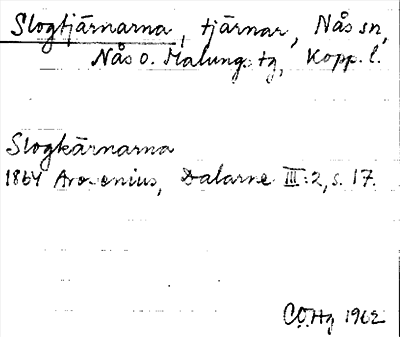 Slogtjärnarna, tjärnar, Nås sn,
Nås o. Malung. tg, Kopp. l.
Slogkärnarna
1864 Arosenius, Dalarne III:2, s. 17.
1962